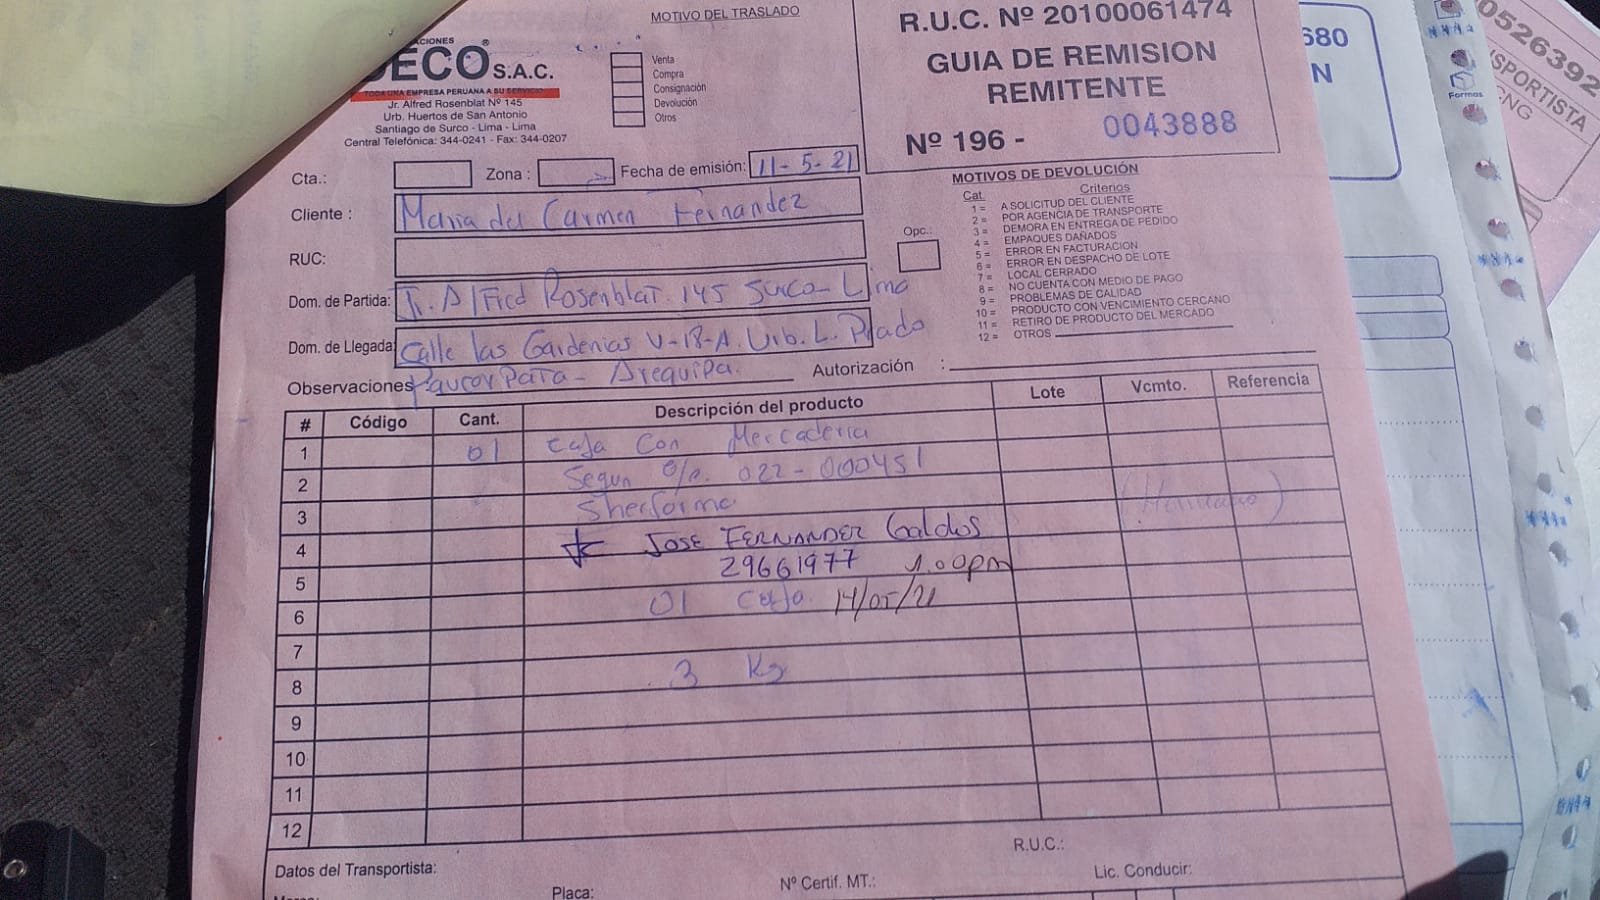 MOTIVO DEL TRASLADO
CIONES
ECO® S.A.C.
TODA UNA EMPRESA PERUANA A SU SERVICIO
Jr. Alfred Rosenblat Nº 145
Urb. Huertos de San Antonio
Santiago de Surco - Lima - Lima
Central Telefónica: 344-0241 - Fax: 344-0207
Venta
Compra
Consignación
Devolución
Otros
R.U.C. Nº 20100061474
GUIA DE REMISION
REMITENTE
Nº 196 - 0043888
Cta.: Zona : Fecha de emisión: 11-5-21
Cliente : Maria del Carmen Fernandez
RUC:
Dom. de Partida: Jr. Alfred Rosenblat. 145 Surco - Lima
Dom. de Llegada: Calle las Gardenias V-18-A. Urb. L. Prado
Observaciones Paucarpata - Arequipa. Autorización :
Opc.:
MOTIVOS DE DEVOLUCIÓN
Cat. Criterios
1 = A SOLICITUD DEL CLIENTE
2 = POR AGENCIA DE TRANSPORTE
3 = DEMORA EN ENTREGA DE PEDIDO
4 = EMPAQUES DAÑADOS
5 = ERROR EN FACTURACION
6 = ERROR EN DESPACHO DE LOTE
7 = LOCAL CERRADO
8 = NO CUENTA CON MEDIO DE PAGO
9 = PROBLEMAS DE CALIDAD
10 = PRODUCTO CON VENCIMIENTO CERCANO
11 = RETIRO DE PRODUCTO DEL MERCADO
12 = OTROS
# Código Cant. Descripción del producto Lote Vcmto. Referencia
1 01 Caja Con Mercaderia
2 Segun 022-000451
3 Sherforma (Hermano)
4 JOSE FERNANDEZ Galdos
5 29661977 1.00pm
6 01 Caja 14/05/21
7
8 3 Kg
9
10
11
12
Datos del Transportista: R.U.C.:
Placa: Nº Certif. MT.: Lic. Conducir:
680
N
Formas
0526392
SPORTISTA
CNG